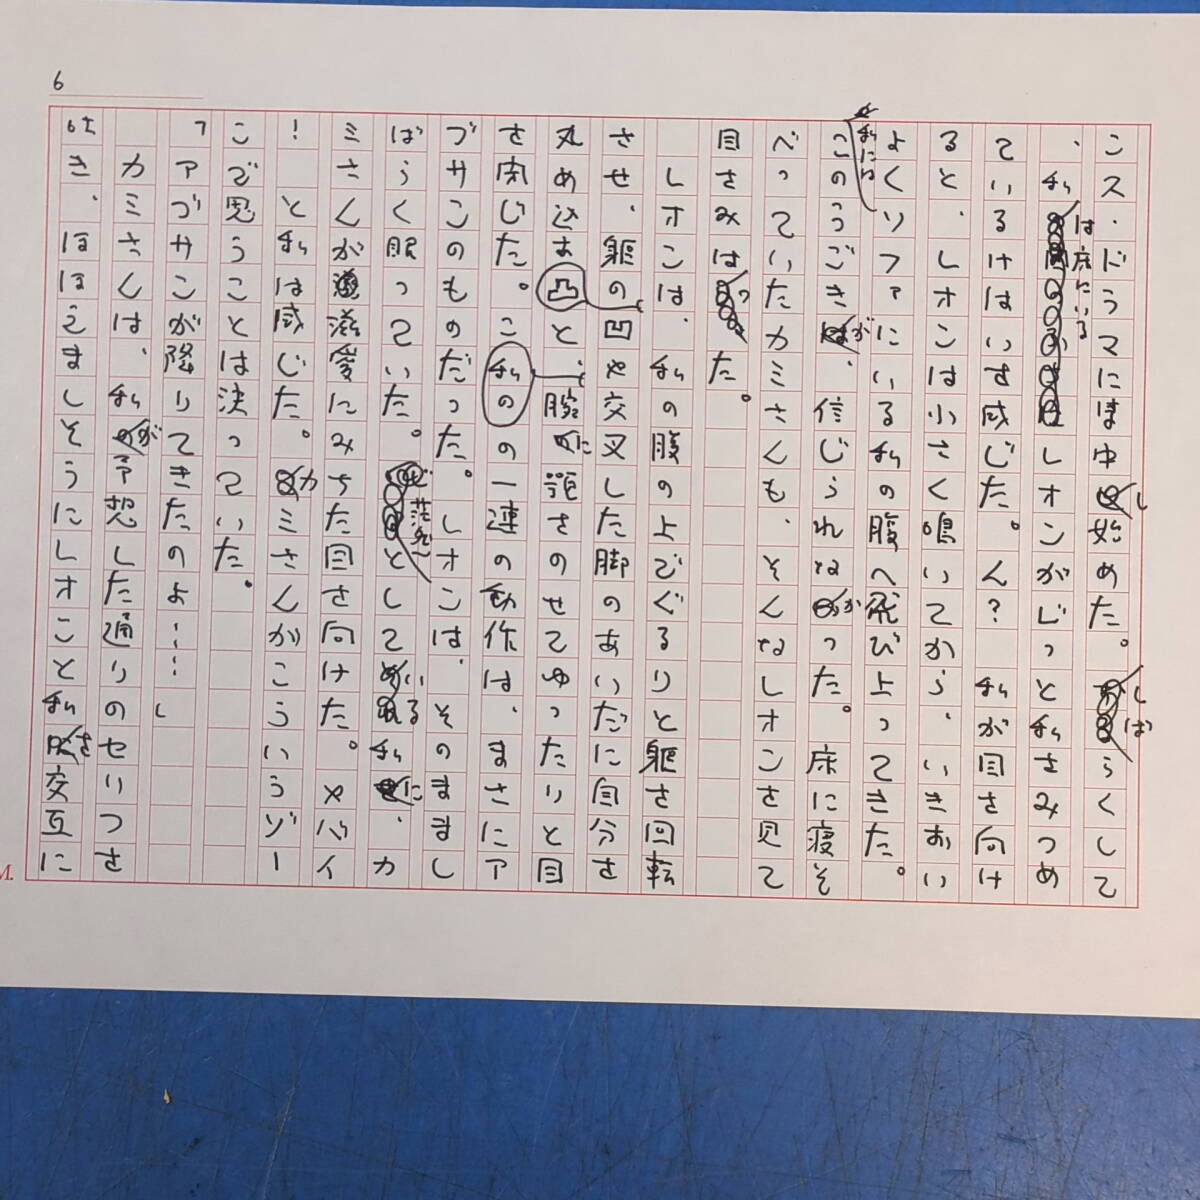 6
こス・ドラマに集中し始めた。しばらくして
、私は床にいるレオンがじっと私をみつめ
ているけはいを感じた。ん？　私が目を向け
ると、レオンは小さく鳴いてから、いきおい
よくソファにいる私の腹へ飛び上ってきた。
私には
このうごきが、信じられなかった。床に寝そ
べっていたカミさんも、そんなレオンを見て
目をみはった。
レオンは、私の腹の上でぐるりと軀を回転
させ、軀の凹や交叉した脚のあいだに自分を
丸め込む凸と、腕に顎をのせてゆったりと目
を閉じた。この私の一連の動作は、まさにア
ヅサこのものだった。レオンは、そのまましし
ばらく眠っていた。茫然としている私に、カ
ミさんが滋愛にみちた目を向けた。ヤバイ
！　と私は感じた。カミさんがこういうゾー
こで思うことは決っていた。
「アヅサこが降りてきたのよ……」
カミさんは、私が予想した通りのセリフを
はき、ほほえましそうにレオこと私を交互に
M.